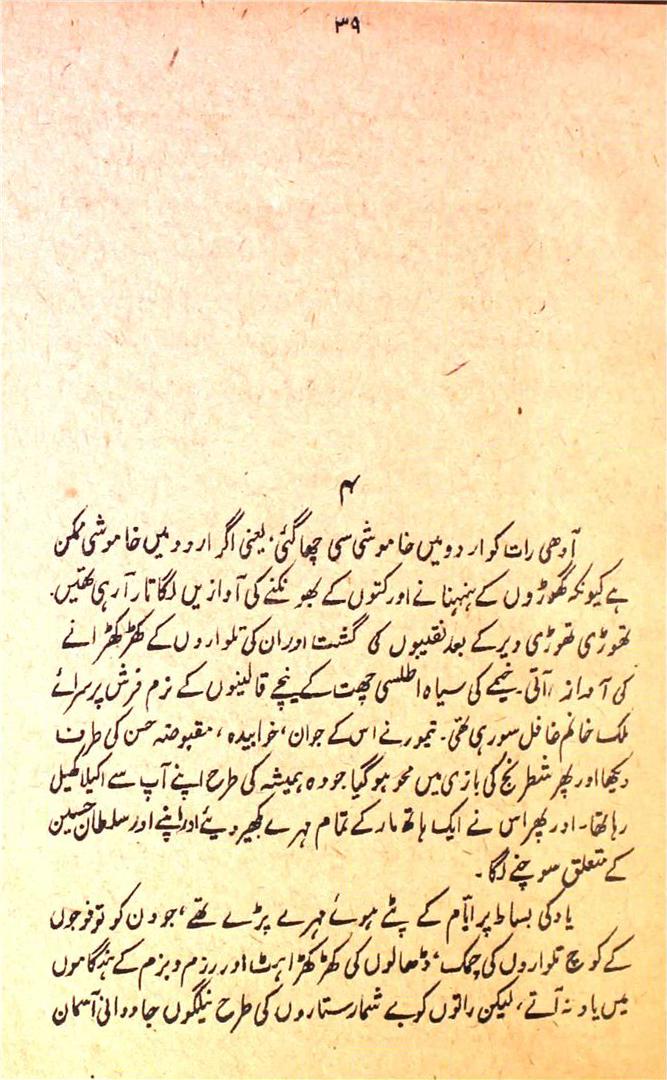 ۳۹
۴
آدھی رات کو اردو میں خاموشی سی چھا گئی، یعنی اگر اردو میں خاموشی ممکن
ہے کیونکہ گھوڑوں کے ہنہنانے اور کتوں کے بھونکنے کی آوازیں لگاتار آرہی تھیں۔
تھوڑی تھوڑی دیر کے بعد نقیبوں کی گشت اور ان کی تلواروں کے کھڑکھڑانے
کی آواز آتی۔ خیمے کی سیاہ اطلسی چھت کے نیچے قالینوں کے نرم فرش پر سرائے
ملک خانم غافل سو رہی تھی۔ تیمور نے اس کے جوان، خوابیدہ، مقبوضہ حسن کی طرف
دیکھا اور پھر شطرنج کی بازی میں محو ہو گیا جو وہ ہمیشہ کی طرح اپنے آپ سے اکیلا کھیل
رہا تھا۔ اور پھر اس نے ایک ہاتھ مار کے تمام مہرے بکھیر دیئے اور اپنے اور سلطان حسین
کے متعلق سوچنے لگا۔
یاد کی بساط پر ایّام کے پٹے ہوئے مہرے پڑے تھے، جو دن کو تو فوجوں
کے کوچ تلواروں کی چمک، ڈھالوں کی کھڑکھڑاہٹ اور رزم و بزم کے ہنگاموں
میں یاد نہ آتے، لیکن راتوں کو بے شمار ستاروں کی طرح نیلگوں جاودانی آسمان